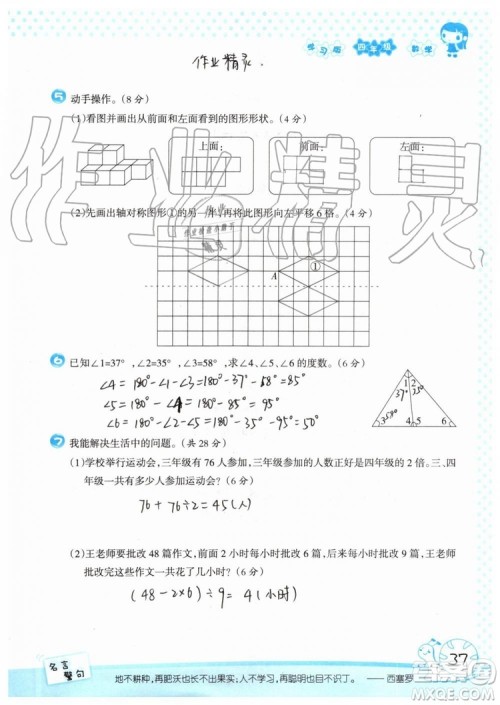 练习版 四年级 数学
作业精灵.
5 动手操作。(8 分)
(1)看图并画出从前面和左面看到的图形形状。(4 分)
上面: 前面: 左面:
(2)先画出轴对称图形①的另一半,再将此图形向左平移 6 格。(4 分)
①
A
6 已知∠1=37°,∠2=35°,∠3=58°,求∠4、∠5、∠6 的度数。(6 分)
∠4=180°-∠1-∠3=180°-37°-58°=85°
∠5=180°-∠4=180°-85°=95°
∠6=180°-∠2-∠5=180°-35°-95°=50°
1 2
37° 35°
3 4 5 6
7 我能解决生活中的问题。(共 28 分)
(1)学校举行运动会,三年级有 76 人参加,三年级参加的人数正好是四年级的 2 倍。三、四
年级一共有多少人参加运动会?(6 分)
76+76÷2=45(人)
(2)王老师要批改 48 篇作文,前面 2 小时每小时批改 6 篇,后来每小时批改 9 篇,王老师
批改完这些作文一共花了几小时?(6 分)
(48-2×6)÷9=4(小时)
名言警句
37
地不耕种,再肥沃也长不出果实;人不学习,再聪明也目不识丁。 ——西塞罗
作业精灵